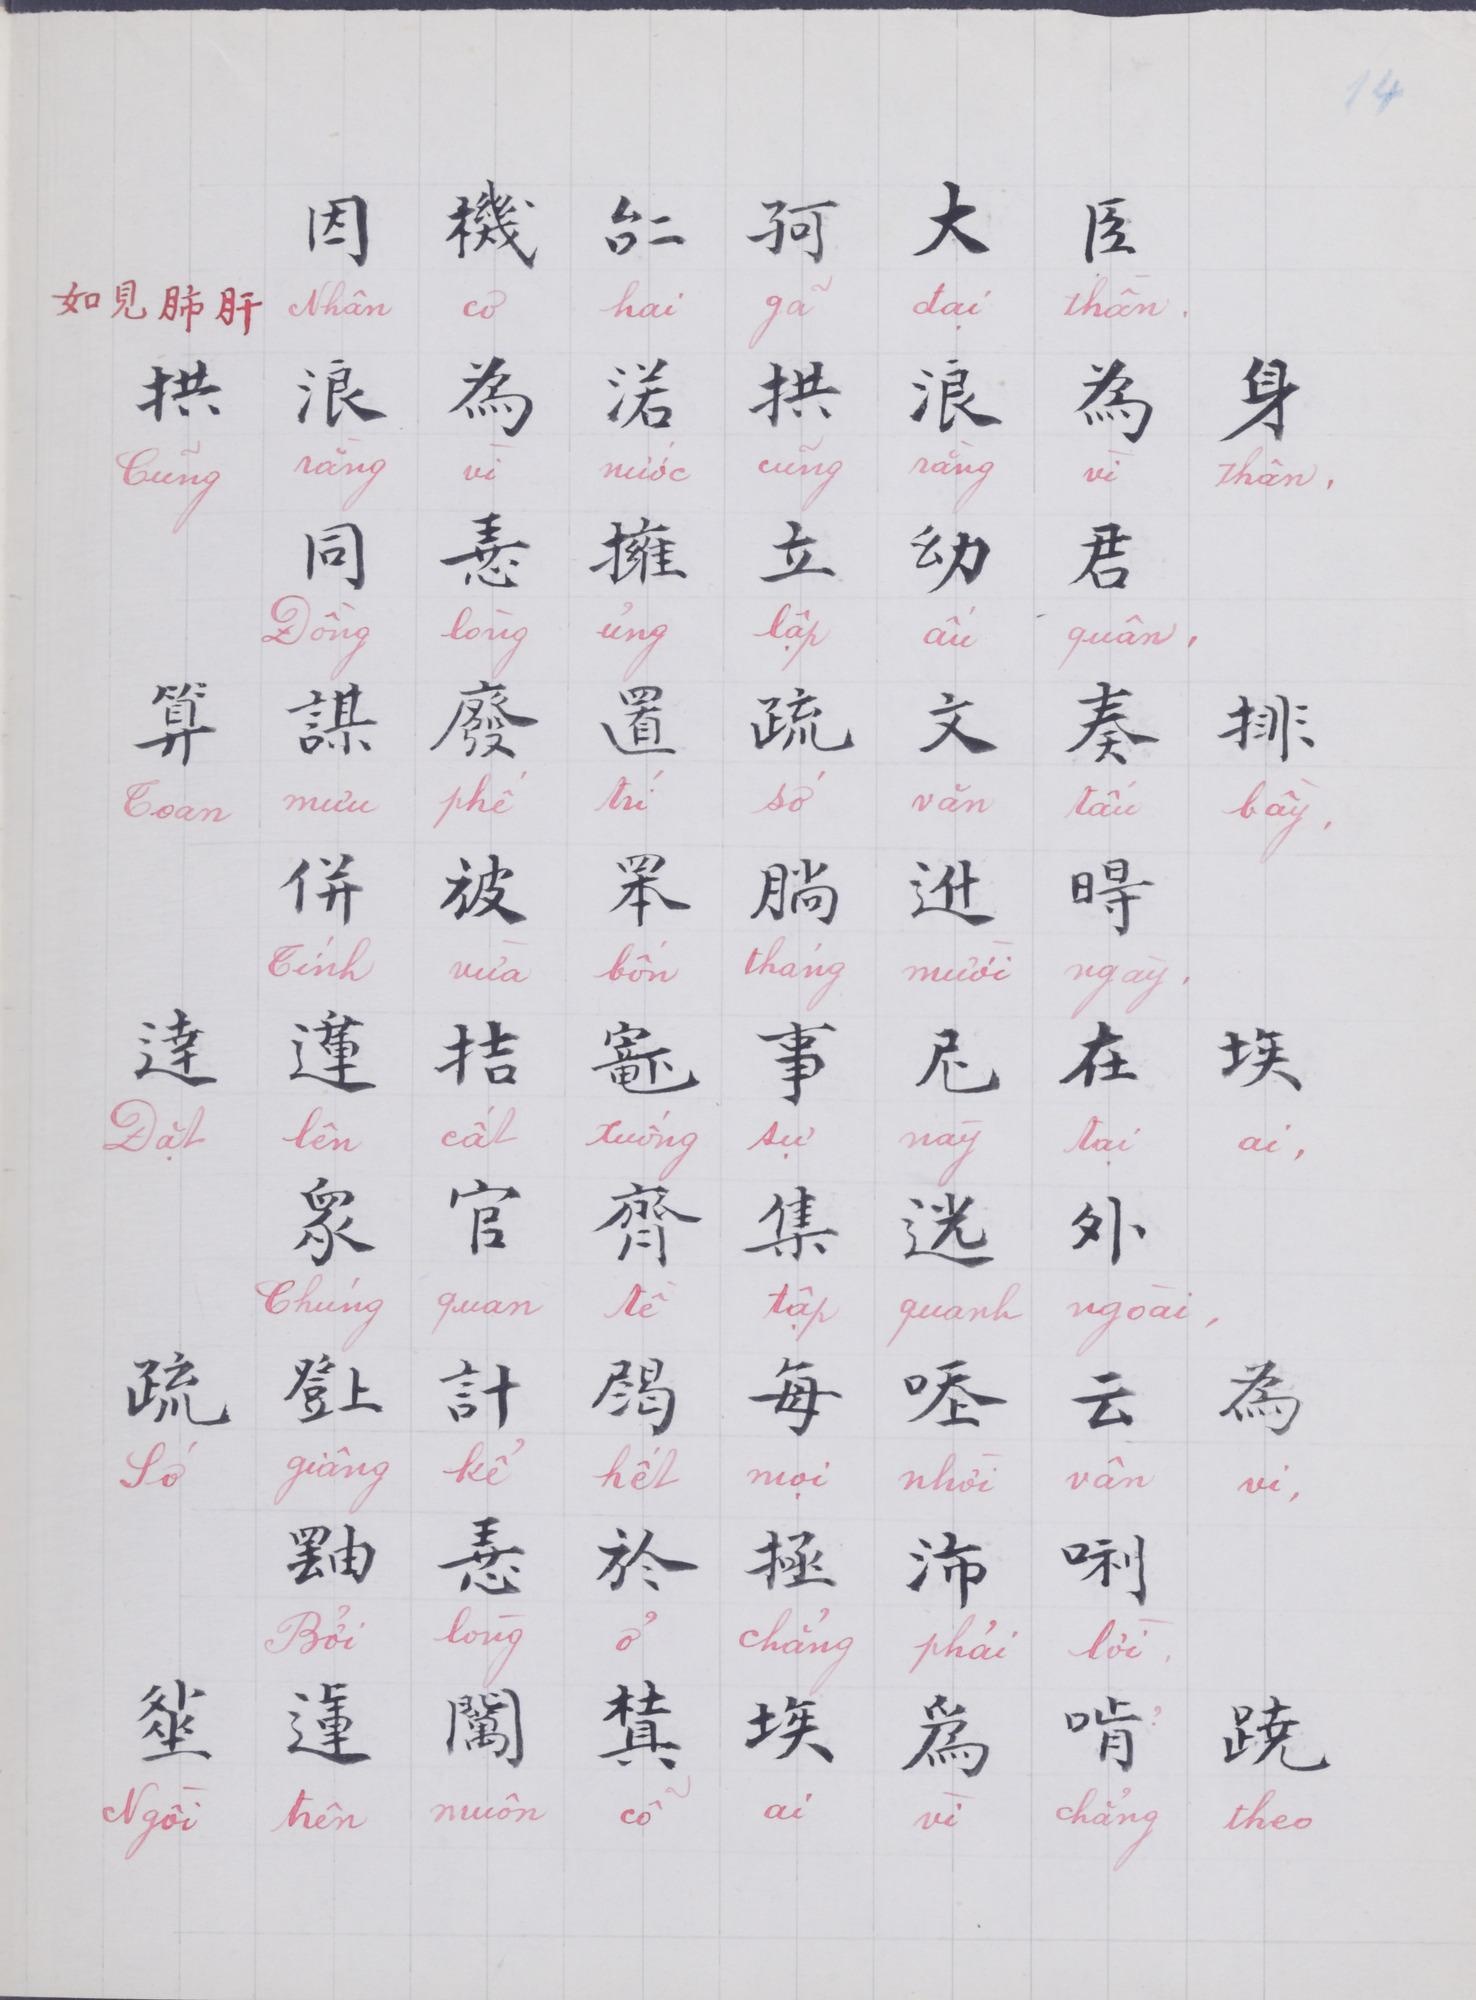 14
因 機 𠄩 哿 大 臣
如見肺肝 Nhân cơ hai gã đại thần.
拱 浪 為 渃 拱 浪 為 身
Cũng rằng vì nước cũng rằng vì thân,
同 𢚸 擁 立 幼 君
Đồng lòng ủng lập ấu quân,
算 謀 廢 置 疏 文 奏 排
Toan mưu phế trí sớ văn tấu bầy,
併 被 𦊚 𣎃 𨑮 𣈜
Tính vừa bốn tháng mười ngày,
達 𨖲 拮 𥧎 事 尼 在 埃
Đặt lên cất xuống sự nầy tại ai,
眾 官 齊 集 𨒺 外
Chúng quan tề tập quanh ngoài,
疏 𤼸 計 歇 每 𠳨 云 為
Sớ giâng kể hết mọi nhời vân vi,
𤳄 𢚸 於 拯 沛 唎
Bởi lòng ở chẳng phải lời,
𡎢 𨕭 𨷈 𡘯 埃 為 啃 蹺
Ngồi trên muôn cỗ ai vì chẳng theo